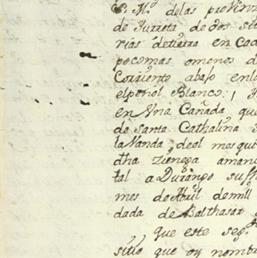 P. M.ᵉ delas provin
de Jurreta de dos siti
rias detierra en Cad
pocomas omenos de
Corriente abajo enlo
elpeñol Blanco; I
en Vna Cañada que
de Santa Cathalina
la Vanda deal mesqui
dha zienega amane
tal a Durango suff
mes de Abril demill
dada de Balthasar
que este seg.
sitio que oy nomb